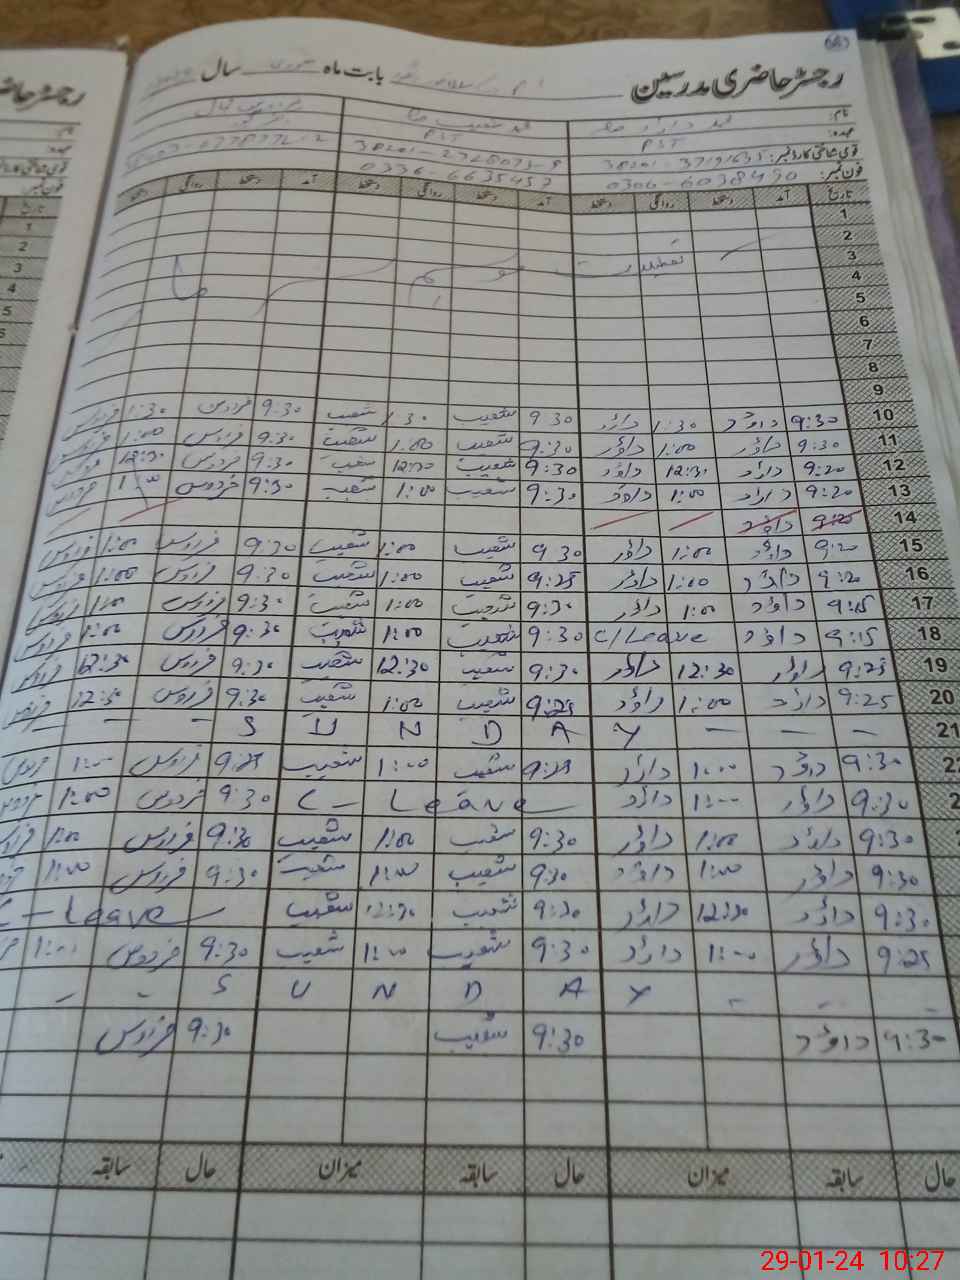 رجسٹر حاضری مدرسین بابت ماہ سال
نام: محمد داؤد محمد شعیب
عہدہ: PST PST
قومی شناختی کارڈ نمبر:
فون نمبر: 0306-6038490 0336-6635457
تاریخ آمد دستخط روانگی دستخط آمد دستخط روانگی دستخط آمد دستخط روانگی دستخط
1
2
3 تعطیلات موسم سرما
4
5
6
7
8
9
10 9:30 داؤد 1:30 داؤد 9:30 شعیب 1:30 شعیب 9:30 فردوس 1:30 فردوس
11 9:30 داؤد 1:00 داؤد 9:30 شعیب 1:00 شعیب 9:30 فردوس 1:00 فردوس
12 9:20 داؤد 12:30 داؤد 9:30 شعیب 12:30 شعیب 9:30 فردوس 12:30 فردوس
13 9:20 داؤد 1:00 داؤد 9:30 شعیب 1:00 شعیب 9:30 فردوس 1:00 فردوس
14 9:25 داؤد
15 9:20 داؤد 1:00 داؤد 9:30 شعیب 1:00 شعیب 9:30 فردوس 1:00 فردوس
16 9:20 داؤد 1:00 داؤد 9:25 شعیب 1:00 شعیب 9:30 فردوس 1:00 فردوس
17 9:15 داؤد 1:00 داؤد 9:30 شعیب 1:00 شعیب 9:30 فردوس 1:00 فردوس
18 9:15 داؤد C/Leave 9:30 شعیب 1:00 شعیب 9:30 فردوس 1:00 فردوس
19 9:25 داؤد 12:30 داؤد 9:30 شعیب 12:30 شعیب 9:30 فردوس 12:30 فردوس
20 9:25 داؤد 1:00 داؤد 9:25 شعیب 1:00 شعیب 9:30 فردوس 12:30 فردوس
21 - - - S U N D A Y - -
22 9:30 داؤد 1:00 داؤد 9:29 شعیب 1:00 شعیب 9:29 فردوس 1:00 فردوس
9:30 داؤد 1:00 داؤد C - Leave 9:30 فردوس 1:00 فردوس
9:30 داؤد 1:00 داؤد 9:30 شعیب 1:00 شعیب 9:30 فردوس 1:00 فردوس
9:30 داؤد 1:00 داؤد 9:30 شعیب 1:00 شعیب 9:30 فردوس 1:00
9:30 داؤد 12:30 داؤد 9:30 شعیب 12:30 شعیب C-Leave
9:25 داؤد 1:00 داؤد 9:30 شعیب 1:00 شعیب 9:30 فردوس 1:00
- - - S U N D A Y - -
9:30 داؤد 9:30 شعیب 9:30 فردوس
حال سابقہ میزان حال سابقہ میزان حال سابقہ
29-01-24 10:27